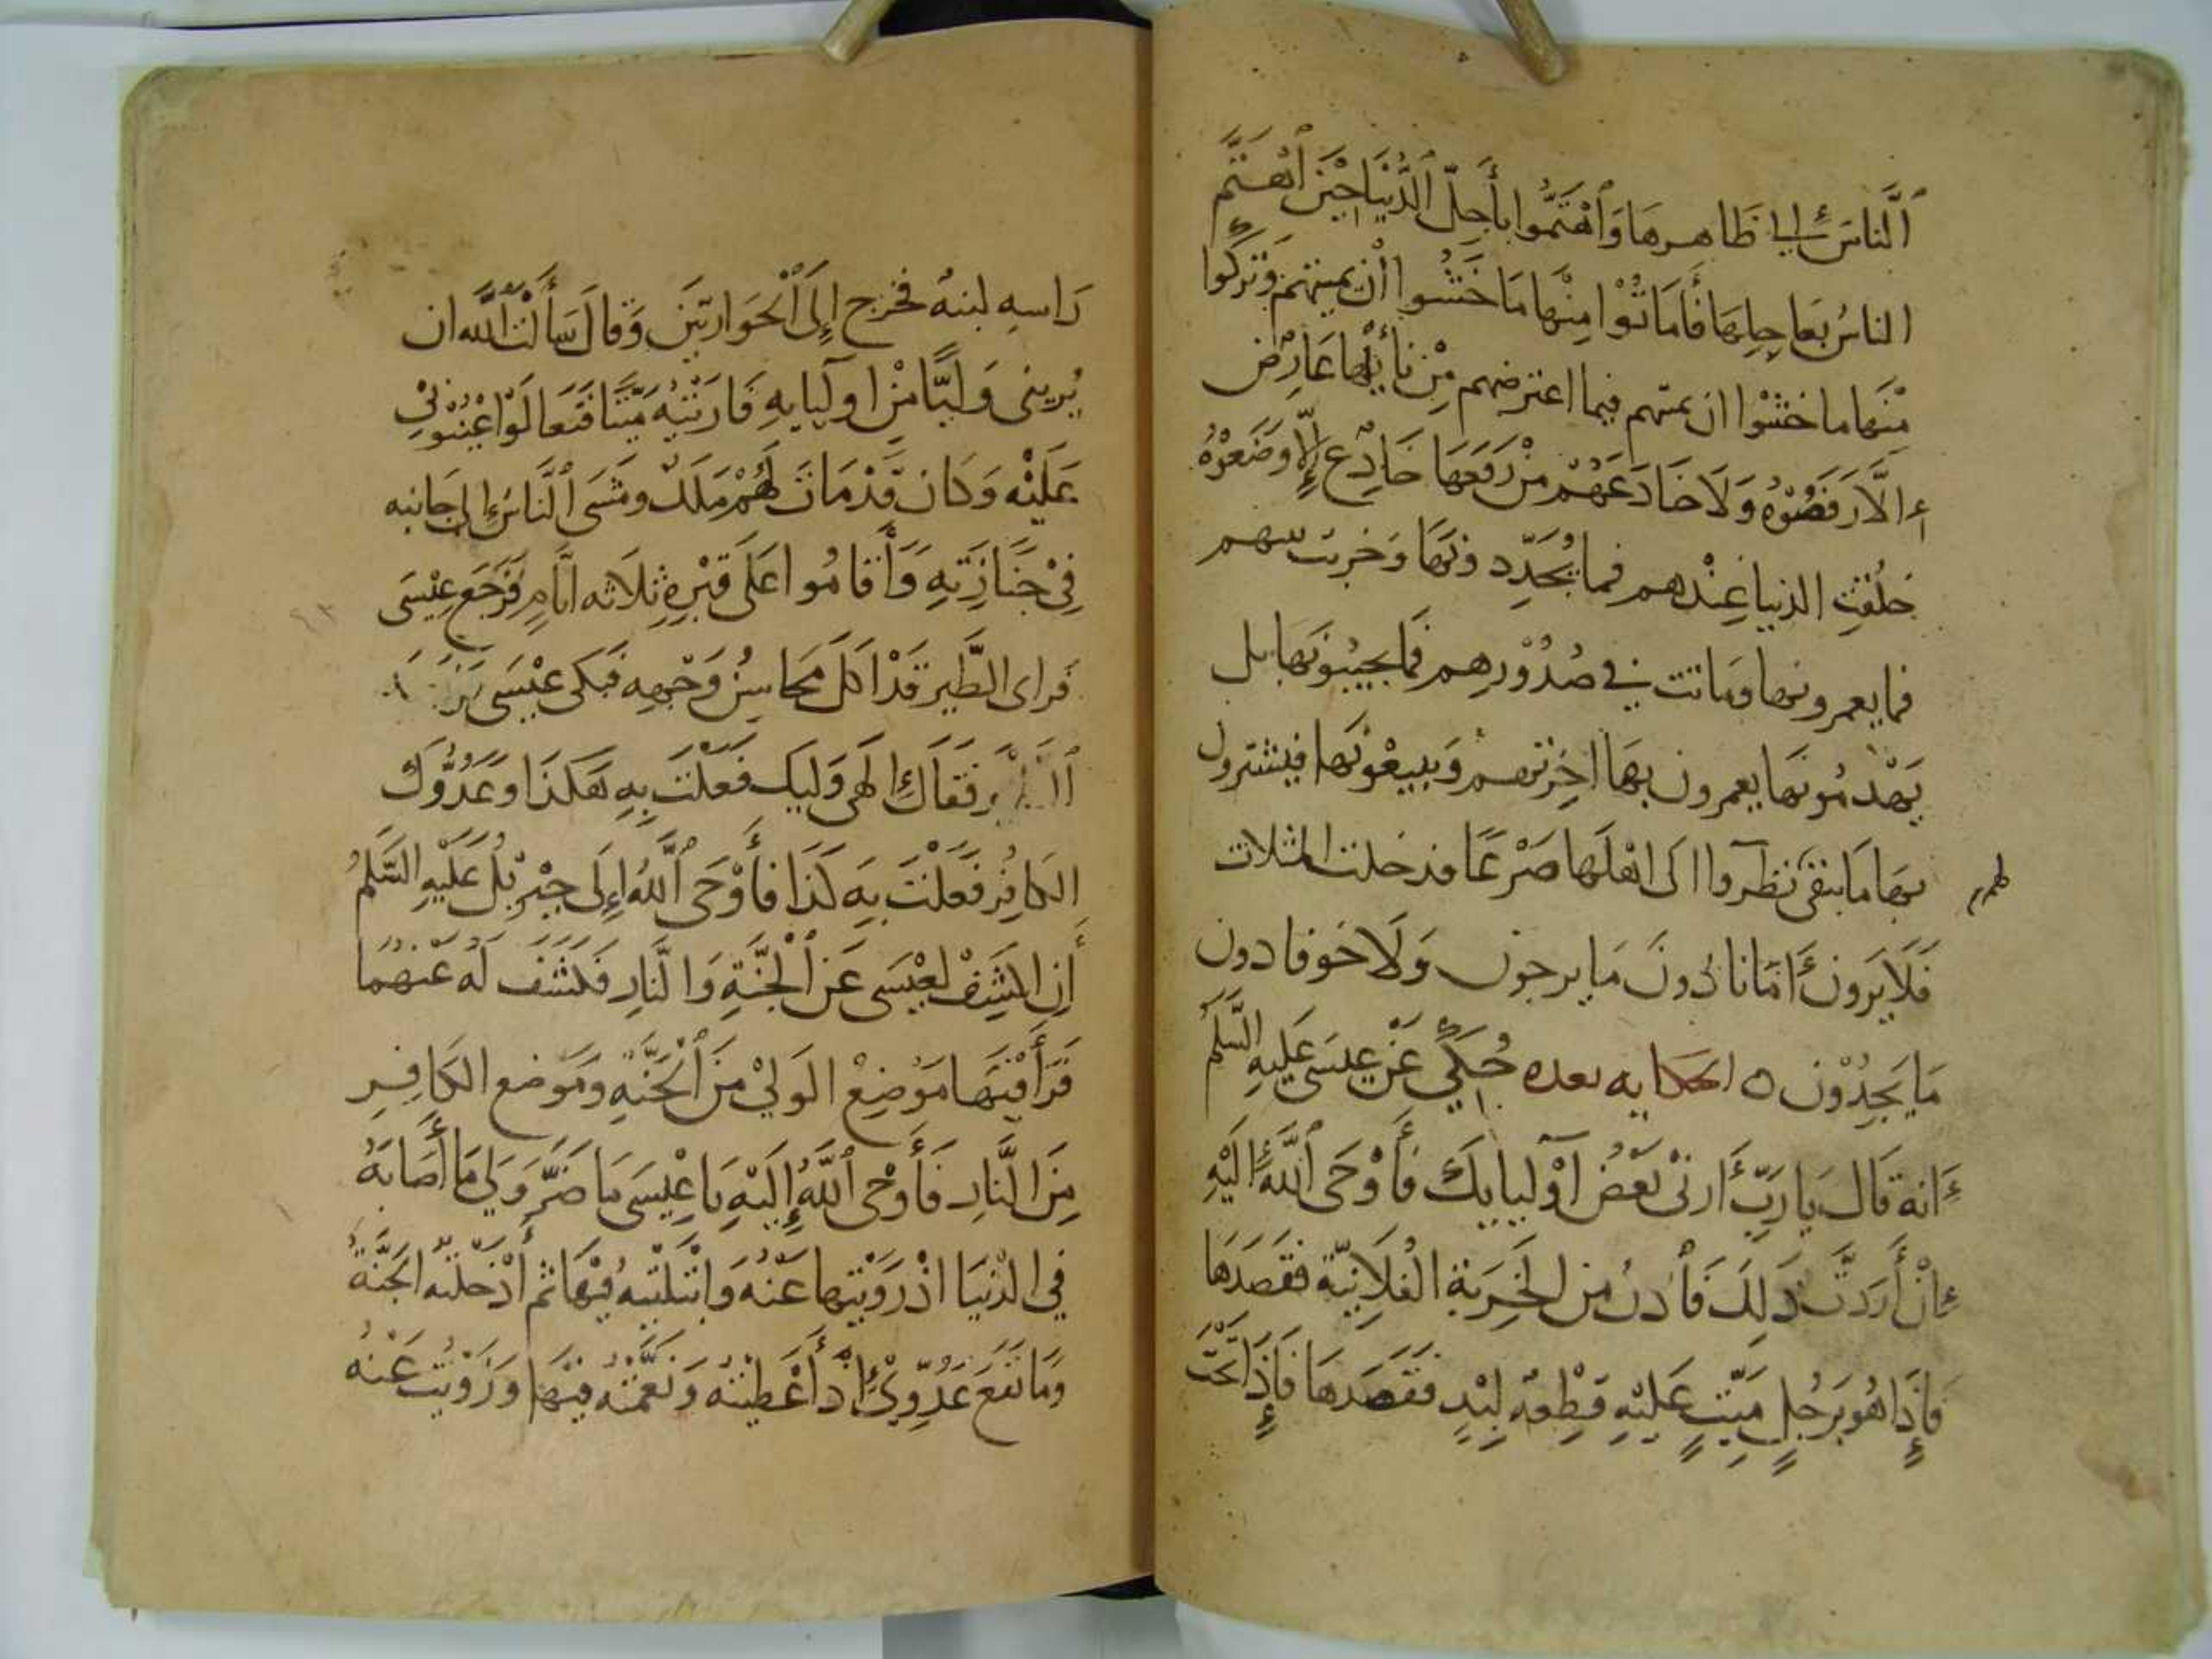 ٱلنَّاسُ إلى ظَاهِرهَا وَٱهْتَمُّوا بأَجلّ الدُّنْيَا حِيْنَ ٱهْتَمَّ
الناسُ بعَاجِلِهَا فَأَمَاتُوْا مِنْهَا مَا خَشُوا أن يميتهم وَتركُوا
مِنْهَا ما خَشَوْا ان يمتهم فيما اعترضهم مِنْ نَائِلِهَا عَارِض
إلَّا رَفَضُوْهُ وَلَا خَادعَهُمْ مِنْ رفعَهَا خَادِع إلَّا وَضَعُوْهُ
خلُقَتِ الدنيا عِنْدهم فما يُجَدّدونَهَا وَخربت بينهم
فما يعمرونها وماتت في صُدُوْرِهِم فَما يحيبُونَهَا بل
يَهْدمُونَهَا يعمرون بهَا اخِرتهم وَيبيعُونَهَا فيشترون
بهَا مَا يبقى نظروا الى اهْلهَا صَرْعًا قد خلت المثلات
لهم
فَلَا يَرونَ أمَانا دُونَ مَا يرجون وَلَا خَوفا دون
مَا يَجِدُوْن ه الحكايه بعده حُكِيَ عَنْ عيسَى عَلَيهِ السَّلَمُ
أنهُ قَالَ يَا رَبِّ أَرِنيْ بَعْضُ أوْليايِكَ فَأَوْحَى ٱللَّهُ إلَيْهِ
إنْ أَرَدَتَّ ذَلِكَ فَأْدنُ مِن الخَرِبَةِ الفُلَانِيَّة فَقَصَدَهَا
فَإِذَا هُو بَرجُلٍ مَيّتٍ عَلَيْهِ قِطْعَة لِبْدٍ فَقَصَدهَا فَإِذَا تَحْتَ
رَاسِهِ لبنهُ فخرج إلَى ٱلْحَوَاريّيْنَ وَقَالَ سَأَلْتُ ٱللَّه ان
يُريني وَليًّا مِنْ اوليايِهِ فَارَنيْهُ مَيّتًا فَتَعَالَوْا عْيْنُوْنِيْ
عَلَيْهِ وَكَان قَدْ مَاتَ لَهُمْ مَلَكٌ ومَشَى ٱلنَّاسُ إلى جَانبه
فِيْ جَنَازَتِهِ وَأَقَامُوا عَلَى قبْرِهِ ثلَاثه ايَّامٍ فَرَجَع عِيْسَى
فَراى الطَّيرَ قَدْ اكَلَ محَاسِنُ وَجْهِهِ فَبَكَى عيْسَى
فَقَالَ إلهي وَليكَ فَعَلْتَ بِهِ هَكَذَا وَعَدُوَّكَ
الكَافِرُ فَعَلْتَ بِهِ كَذَا فَأَوْحَى ٱللَّهُ إِلَى جِبْرِيْلُ عَلَيْهِ السَّلَمُ
أَنِ اكْشِفْ لعِيْسَى عَن ٱلْجنَّةِ وَالنَّارِ فَكَشَفَ لَهُ عَنْهُمَا
فَرَأَ فيْهَا مَوْضِعْ الوَليْ مِنَ ٱلْجَنَّةِ ومَوْضع الكَافِرِ
مِنَ النَّارِ فَأَوْحَى ٱللَّهُ إِلَيْهِ يَا عِيْسَى مَا ضَرَّ وَلي مَا أَصَابَهُ
في الدّنيَا اذْ رَوَيْتهَا عَنْهُ وَابْتَلَيْتهُ فِيْهَا ثم أَدْخَلتهُ الجَنَّةُ
وَمَا نَفَعَ عَدُوِّيْ إذْ أَعْطَيْتُهُ وَنَعَّمْتُهُ فِيْهَا وَزَوَيْت عَنْهُ